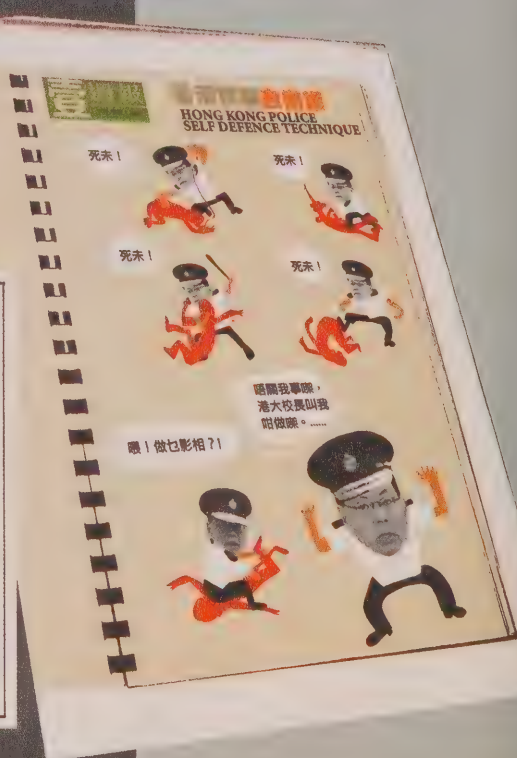 壹
自衛術
HONG KONG POLICE
SELF DEFENCE TECHNIQUE
死未！
死未！
死未！
死未！
唔關我事㗎，
港大校長叫我
咁做㗎。......
喂！做乜影相？！